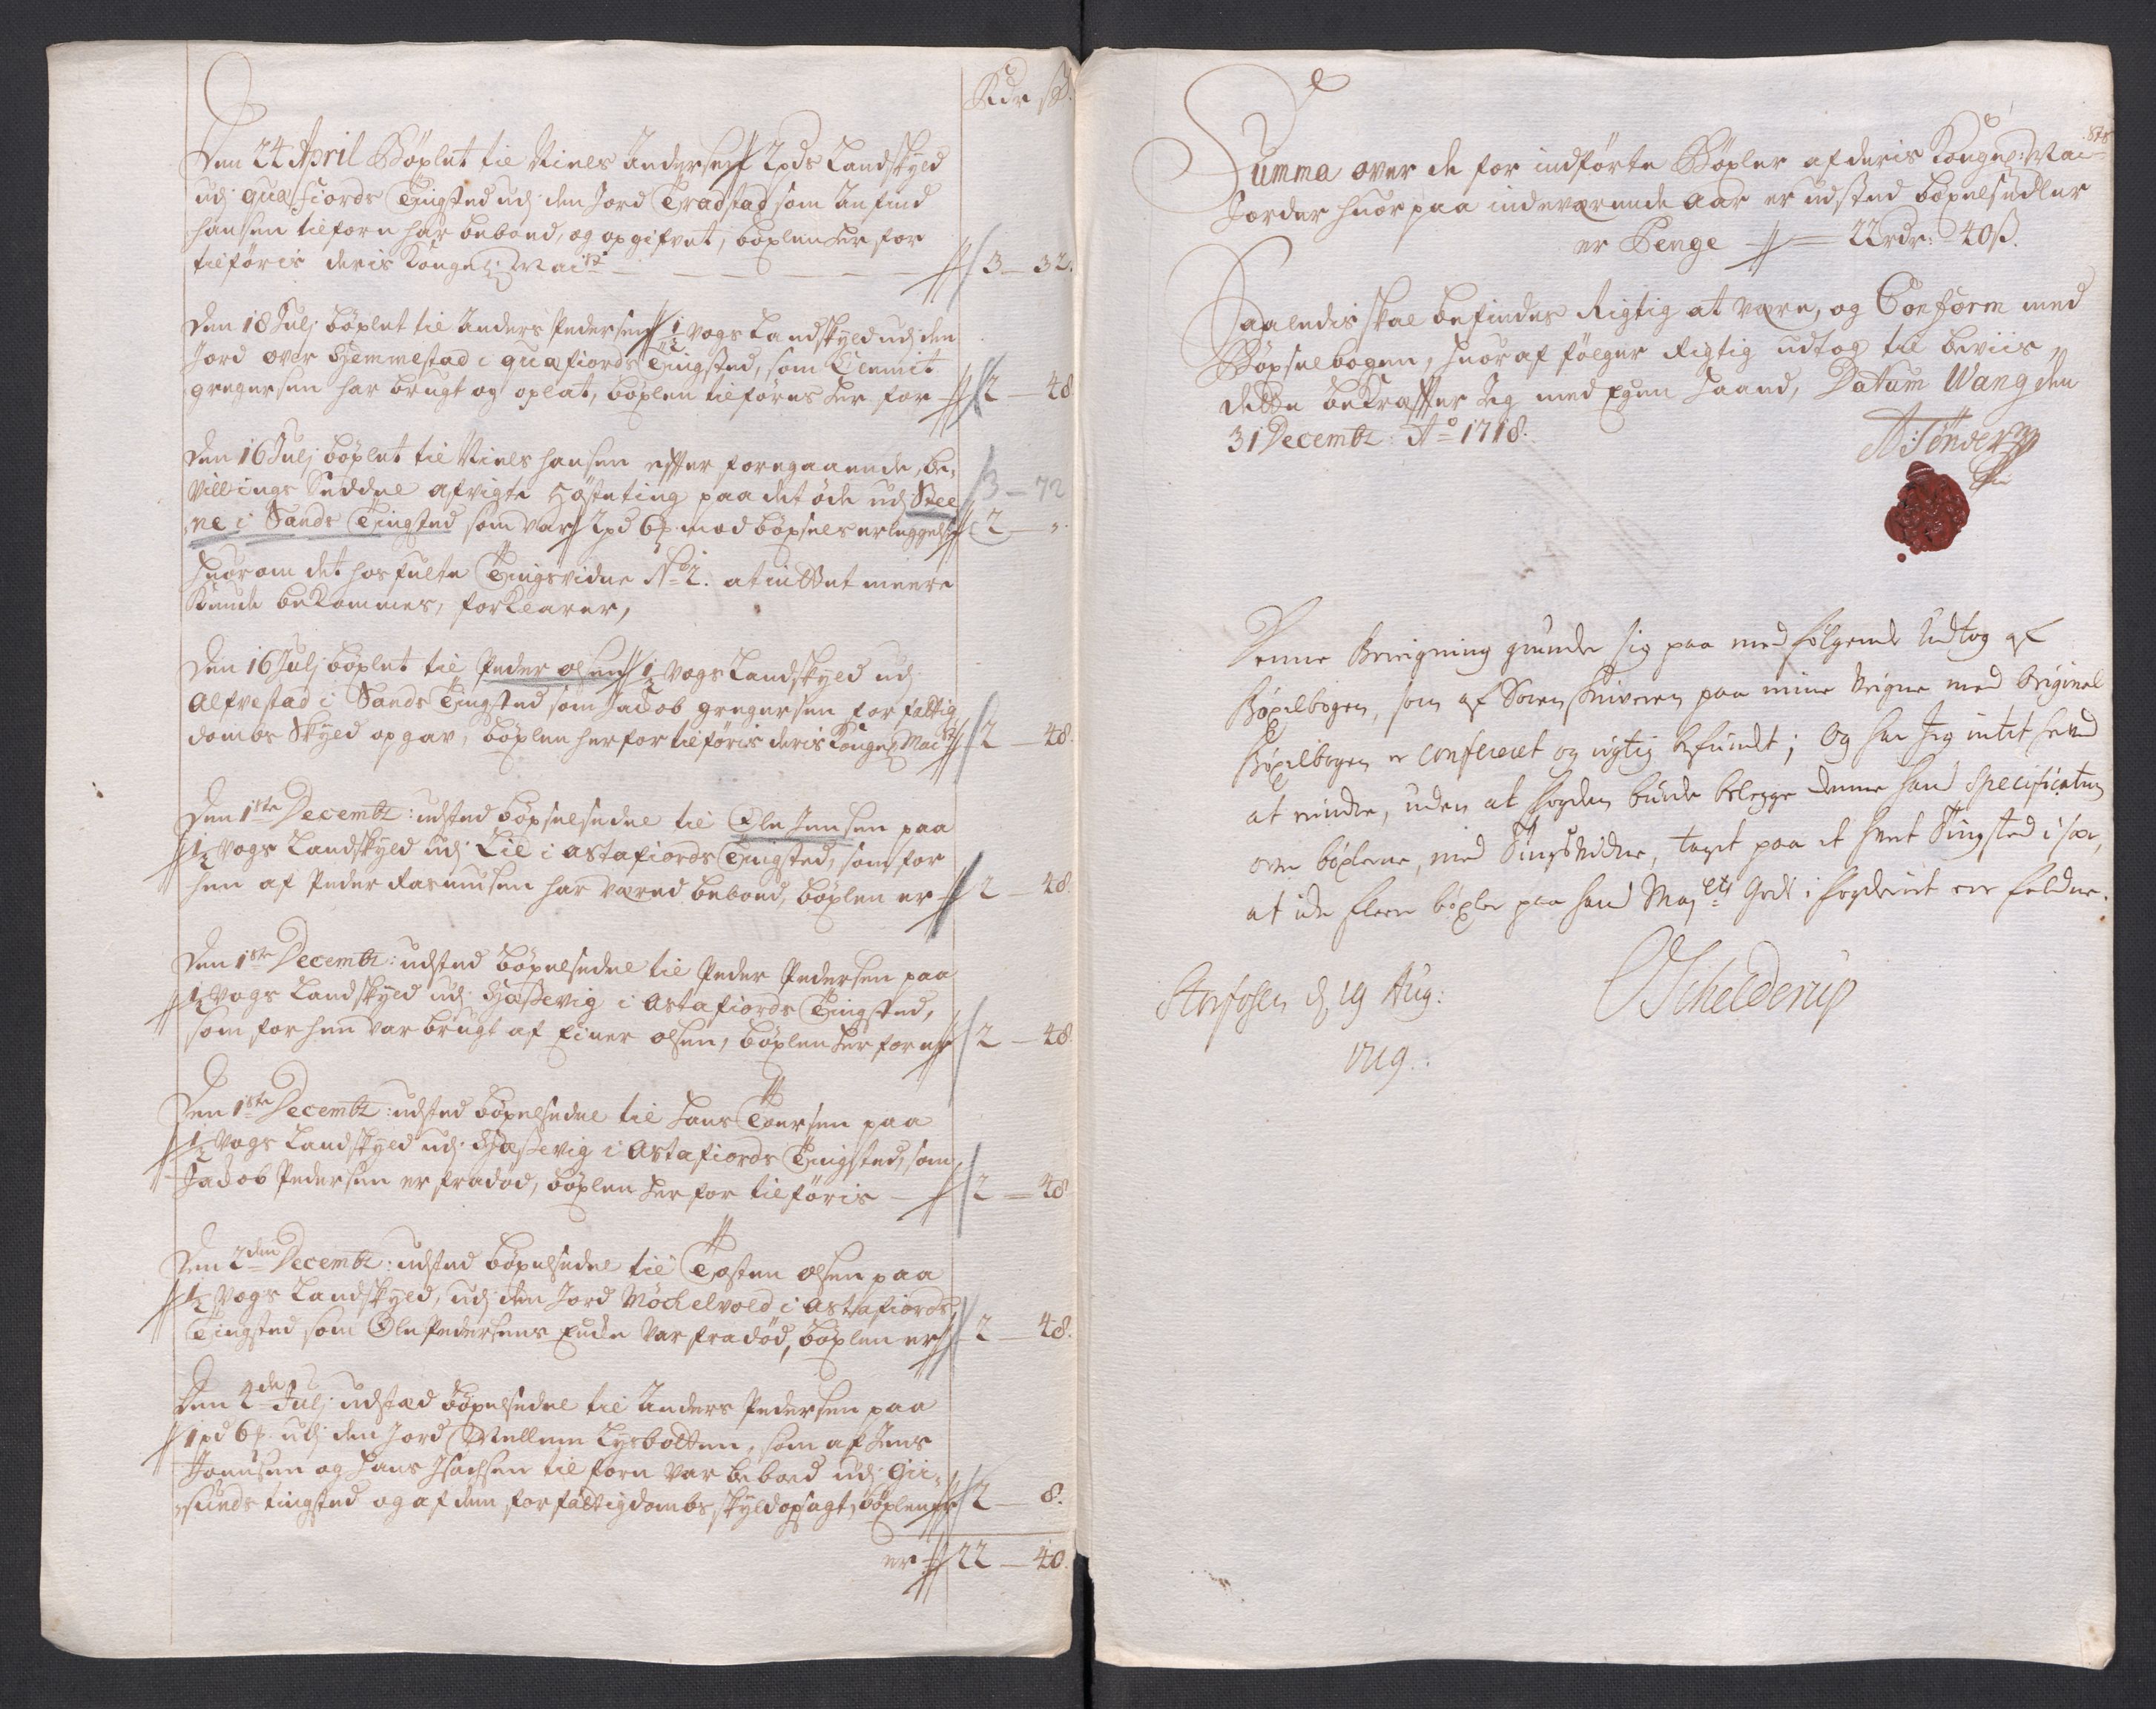 Rdr ß.
Den 24 April Böxlet til Niels Andersen 2pds Landskyld
udj quafiords Tingsted udj den Jord Tradstad som Anfind
hansen tilforn har beboed, og opgifvet, böxlen her for
tilföris deris Kongel: Mai st. 3 — 32.
Den 18 Julj böxlet til Anders Pedersen ½ vogs Landskyld udj den
Jord over Hemmestad i quafiords Tingsted, som Clemit
gregersen har brugt og oplat, böxlen tilföres her for 2 — 48
Den 16 Julj böxlet til Niels hansen efter foregaaende be-
villings Seddel afvigte Höste ting paa det öde udj Stee 3 — 72
ne i Sands Tingsted som var 2pd 6 mod böxsels erleggelse 2 — "
huorom det hosfulte Tingsvidne No 2. at intet meere
kunde bekommes, forklarer,
Den 16 Julj böxlet til Peder olsen ½ vogs Landskyld udj
Alfvestad i Sands Tingsted som Jacob gregersen for fattig
dombs Skyld opgav, böxlen herfor tilföris deris Kongel Mai st 2 — 48.
Den 1ste Decembr: udsted böxselsedel til Ole Jensen paa
½ vogs Landskyld udj Lie i astafiords Tingsted, som for
hen af Peder Rasmusen har væred beboed, böxlen er 2 — 48.
Den 1ste Decembr: udsted böxelsedel til Peder Pedersen paa
½ vogs Landskyld udj Hæssevig i Astafiords Tingsted,
som forhen var brugt af Einer olsen, böxlen her for er 2 — 48.
Den 1ste Decembr: udsted böxelsedel til hans Toersen paa
½ vogs Landskyld udj Hæssevig i Astafiords Tingsted, som
Jacob Pedersen er fradöd, böxlen her for tilföris — 2 — 48
Den 2den Decembr: udsted böxelsedel til Tosten olsen paa
½ vogs Landskyld, udj den Jord Möchelvold i astafiords
Tingsted som Ole Pedersens Encke var fradöd, böxlen er 2 — 48.
Den 2de Julj udsted böxelsedel til Anders Pedersen paa
1 pd 6 udj den Jord Mellem Lysbotten, som af Jens
Jonnsen og hans Isachsen til forn var beboed udj Gii-
sunds tingsted og af dem for fattigdombs skyld opsagt, böxlen er 2 — 8.
er 22 — 40.
Summa over de for indförte Böxler af deris Kongel: Mai sts
Jorder huor paa indeværende aar er udsted böxelsedler
er Penge — 22 rdr: 40 ß.
Saaledis skal befindes Rigtig at være, og Conform med
Böxselbogen, huoraf fölger Rigtig udtog til beviis,
dette bekraffter Jeg med Egen haand, Datum Wang den
31 Decembr: Ao 1718.
A: Tönder
Denne Beregning grunder sig paa medfölgende Udtog af
Böxelbogen, som af Sorenskriveren paa mine Veigne med Original
Böxelbogen er confereret og rigtig befundt; Og har Jeg intet herved
at erindre, uden at fogden burde belegge denne hans Specification
over böxlerne, med Tingsvidne, taget paa et hvert Tingsted i sær,
at icke fleere böxler paa hans Maj ets Gods i fogderiet ere faldne.
Storfosen d 19 Aug:
1719.
OSchelderup